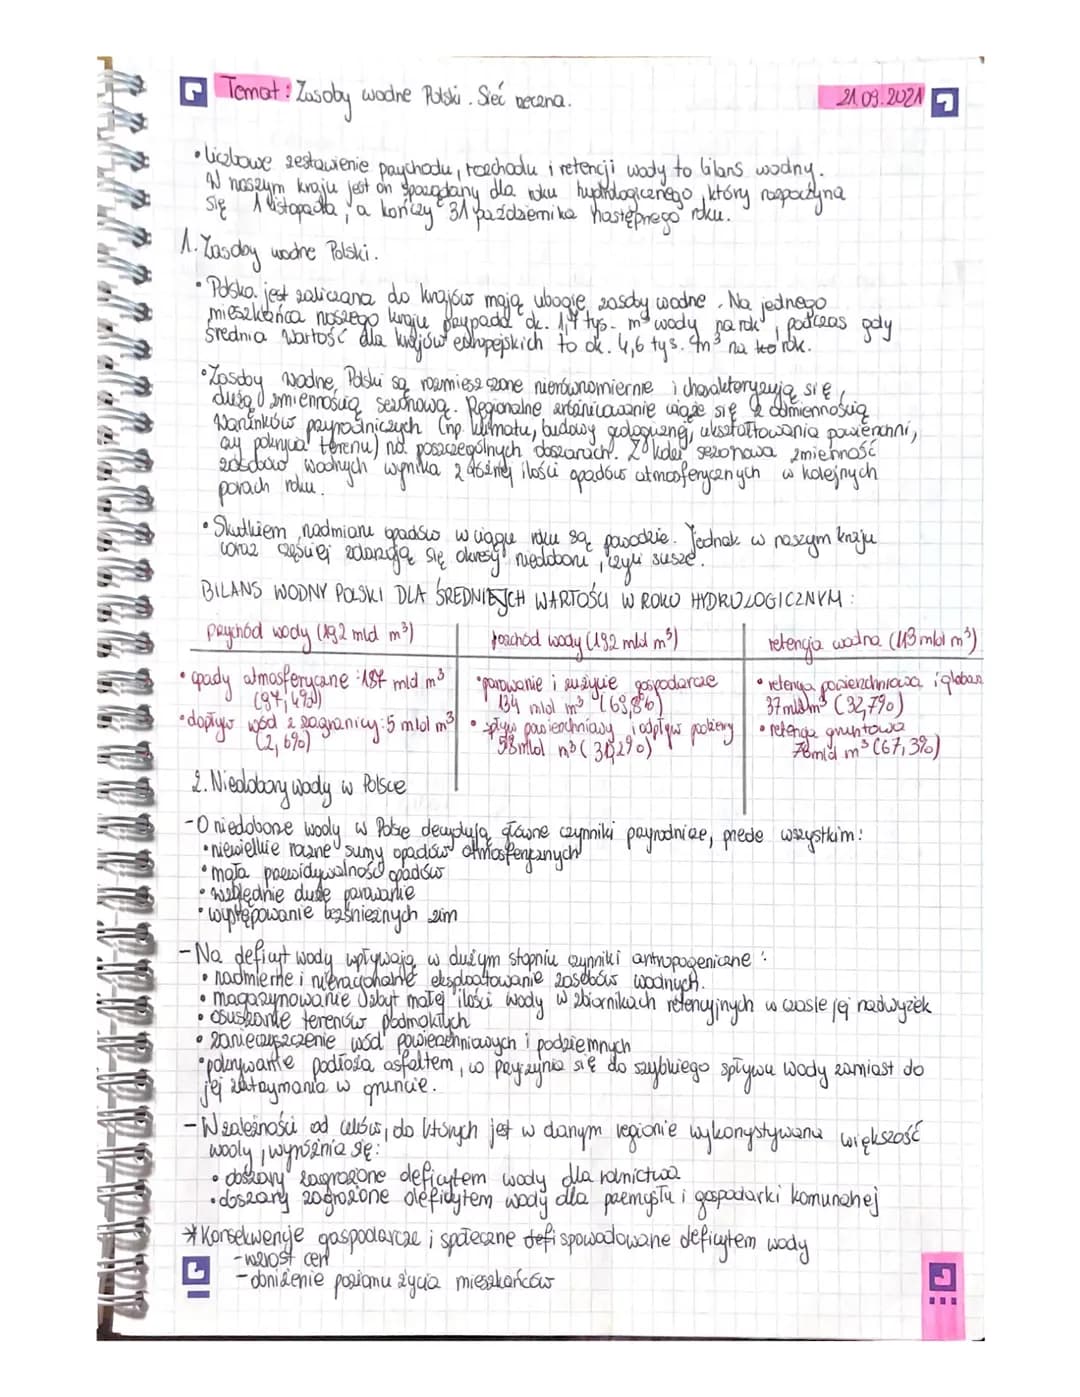 Temat: Zasoby wodne Polski. Sieć rzeczna.
21.09.2021
• Liczbowe zestawienie przychodu, rozchodu i retencji wody to bilans wodny.
W naszym kraju jest on sporządzany dla roku hydrologicznego, który rozpoczyna
się 1 listopada, a kończy 31 października następnego roku.
1. Zasoby wodne Polski.
• Polska jest zaliczana do krajów mają ubogie zasoby wodne. Na jednego
mieszkańca naszego kraju przypada ok. 1,7 tys. m³ wody na rok, podczas gdy
średnia wartość dla krajów europejskich to ok. 4,6 tys. m³ na rok.
• Zasoby wodne Polski są rozmieszczone nierównomiernie i charakteryzują się
dużą zmiennością sezonową. Regionalne zróżnicowanie wiąże się z odmiennością
warunków przyrodniczych (np. klimatu, budowy geologicznej, ukształtowania powierzchni,
czy pokrycia terenu) na poszczególnych obszarach. Z kolei sezonowa zmienność
zasobów wodnych wynika z różnej ilości opadów atmosferycznych w kolejnych
porach roku.
• Skutkiem nadmiaru opadów w ciągu roku są powodzie. Jednak w naszym kraju
coraz częściej zdarzają się okresy niedoboru, czyli susze.
BILANS WODNY POLSKI DLA ŚREDNICH WARTOŚCI W ROKU HYDROLOGICZNYM:
przychód wody (192 mld m³)
rozchód wody (192 mld m³)
retencja wodna (113 mld m³)
• opady atmosferyczne: 187 mld m³
(97,4%)
• dopływ wód z zagranicy: 5 mld m³
(2,6%)
• parowanie i zużycie gospodarcze
134 mld m³ (69,8%)
• spływ powierzchniowy i odpływ podziemny
58 mld m³ (30,2%)
• retencja powierzchniowa i glebowa
37 mld m³ (32,7%)
• retencja gruntowa
76 mld m³ (67,3%)
2. Niedobory wody w Polsce
- O niedoborze wody w Polsce decydują główne czynniki przyrodnicze, przede wszystkim:
• niewielkie roczne sumy opadów atmosferycznych
• mała przewidywalność opadów
• względnie duże parowanie
• występowanie bezśnieżnych zim
- Na deficyt wody wpływają w dużym stopniu czynniki antropogeniczne:
• nadmierne i nieracjonalne eksploatowanie zasobów wodnych.
• magazynowanie zbyt małej ilości wody w zbiornikach retencyjnych w czasie jej nadwyżek
• osuszanie terenów podmokłych
• zanieczyszczenie wód powierzchniowych i podziemnych
• pokrywanie podłoża asfaltem, co przyczynia się do szybkiego spływu wody zamiast do
jej zatrzymania w gruncie.
- W zależności od celów, do których jest w danym regionie wykorzystywana większość
wody, wyróżnia się:
• obszary zagrożone deficytem wody dla rolnictwa
• obszary zagrożone deficytem wody dla przemysłu i gospodarki komunalnej
* Konsekwencje gospodarcze i społeczne spowodowane deficytem wody
- wzrost cen
- obniżenie poziomu życia mieszkańców